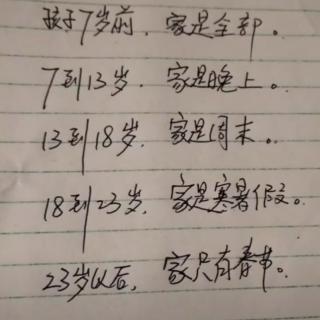 孩子7岁前，家是全部。
7到13岁，家是晚上。
13到18岁，家是周末。
18到23岁，家是寒暑假。
23岁以后，家只有春节。